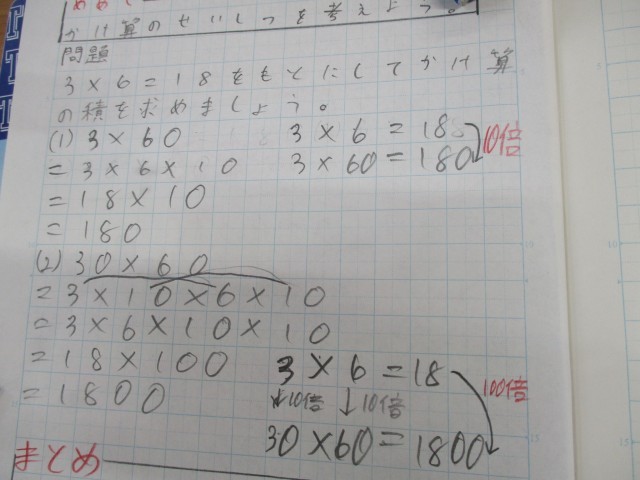 かけ算のせいしつを考えよう。
問題
3×6=18をもとにしてかけ算
の積を求めましょう。
(1) 3×60
=3×6×10
=18×10
=180
3×6=18
3×60=180
10倍
(2) 30×60
=3×10×6×10
=3×6×10×10
=18×100
=1800
3×6=18
↓10倍 ↓10倍
30×60=1800
100倍
まとめ